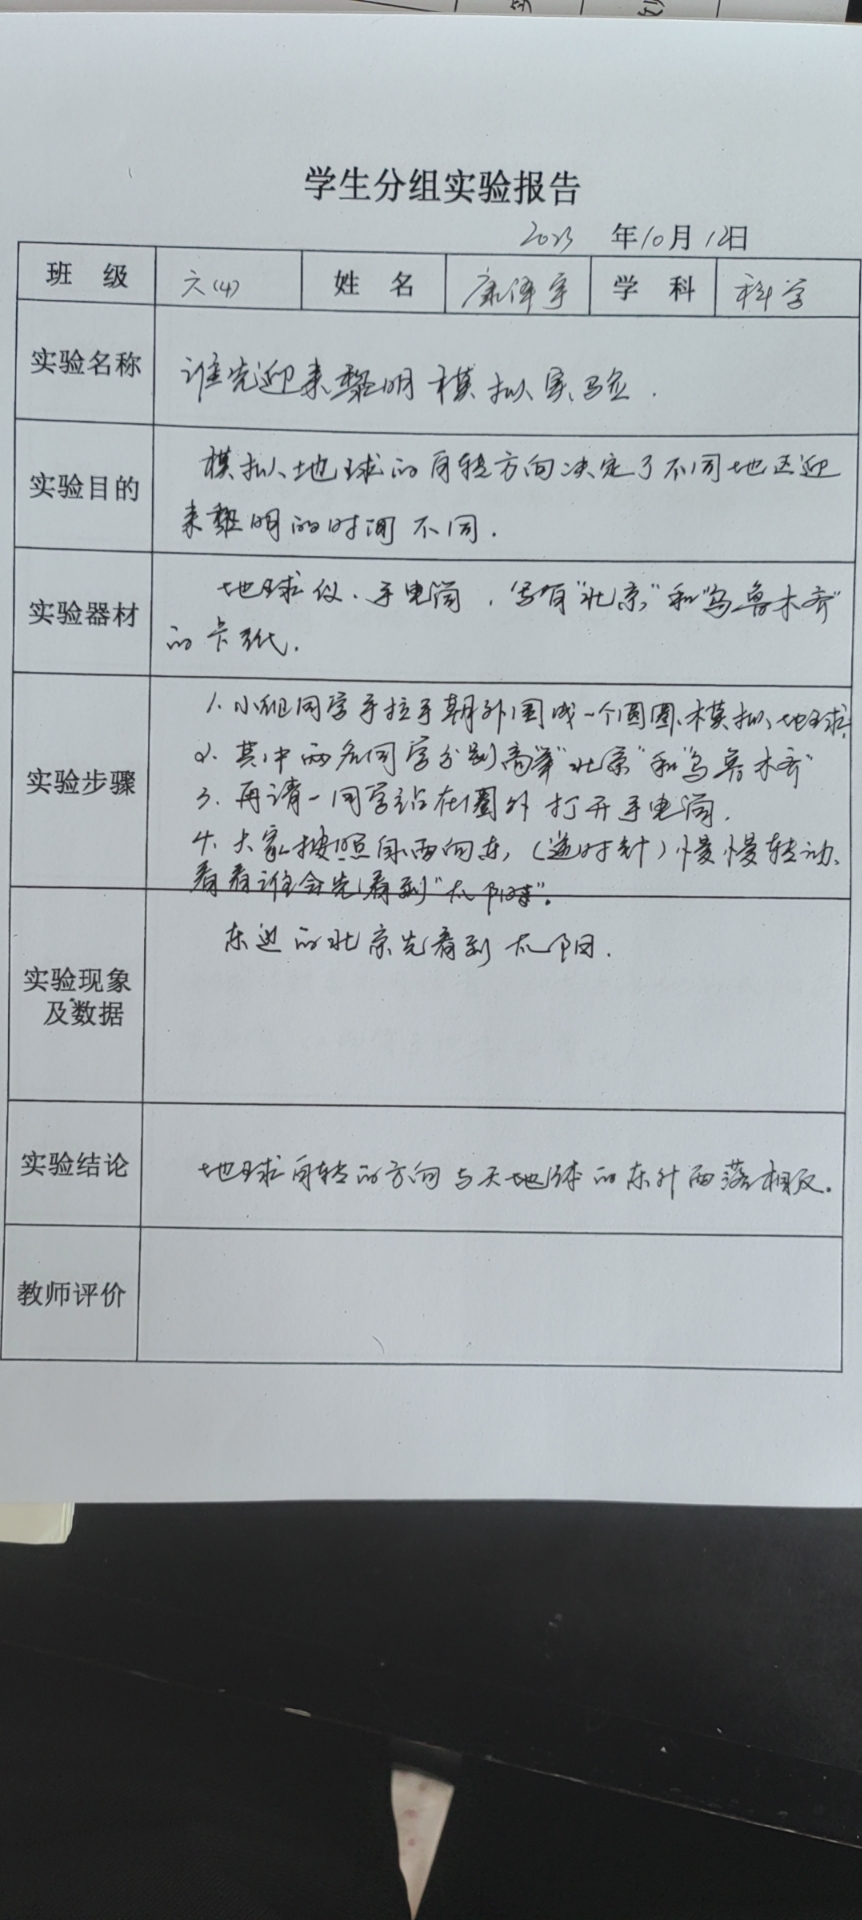 学生分组实验报告
2023 年10月12日
班 级 六(4) 姓 名 康泽宇 学 科 科学
实验名称 谁先迎来黎明模拟实验.
实验目的 模拟地球的自转方向决定了不同地区迎
来黎明的时间不同.
实验器材 地球仪、手电筒、写有"北京"和"乌鲁木齐"
的卡纸.
实验步骤 1.小组同学手拉手朝外围成一个圆圈、模拟地球.
2.其中两名同学分别高举"北京"和"乌鲁木齐"
3.再请一同学站在圈外打开手电筒.
4.大家按照自西向东,(逆时针)慢慢转动、
看看谁会先看到"太阳".
实验现象
及数据 东边的北京先看到太阳.
实验结论 地球自转的方向与天地球的东升西落相反.
教师评价